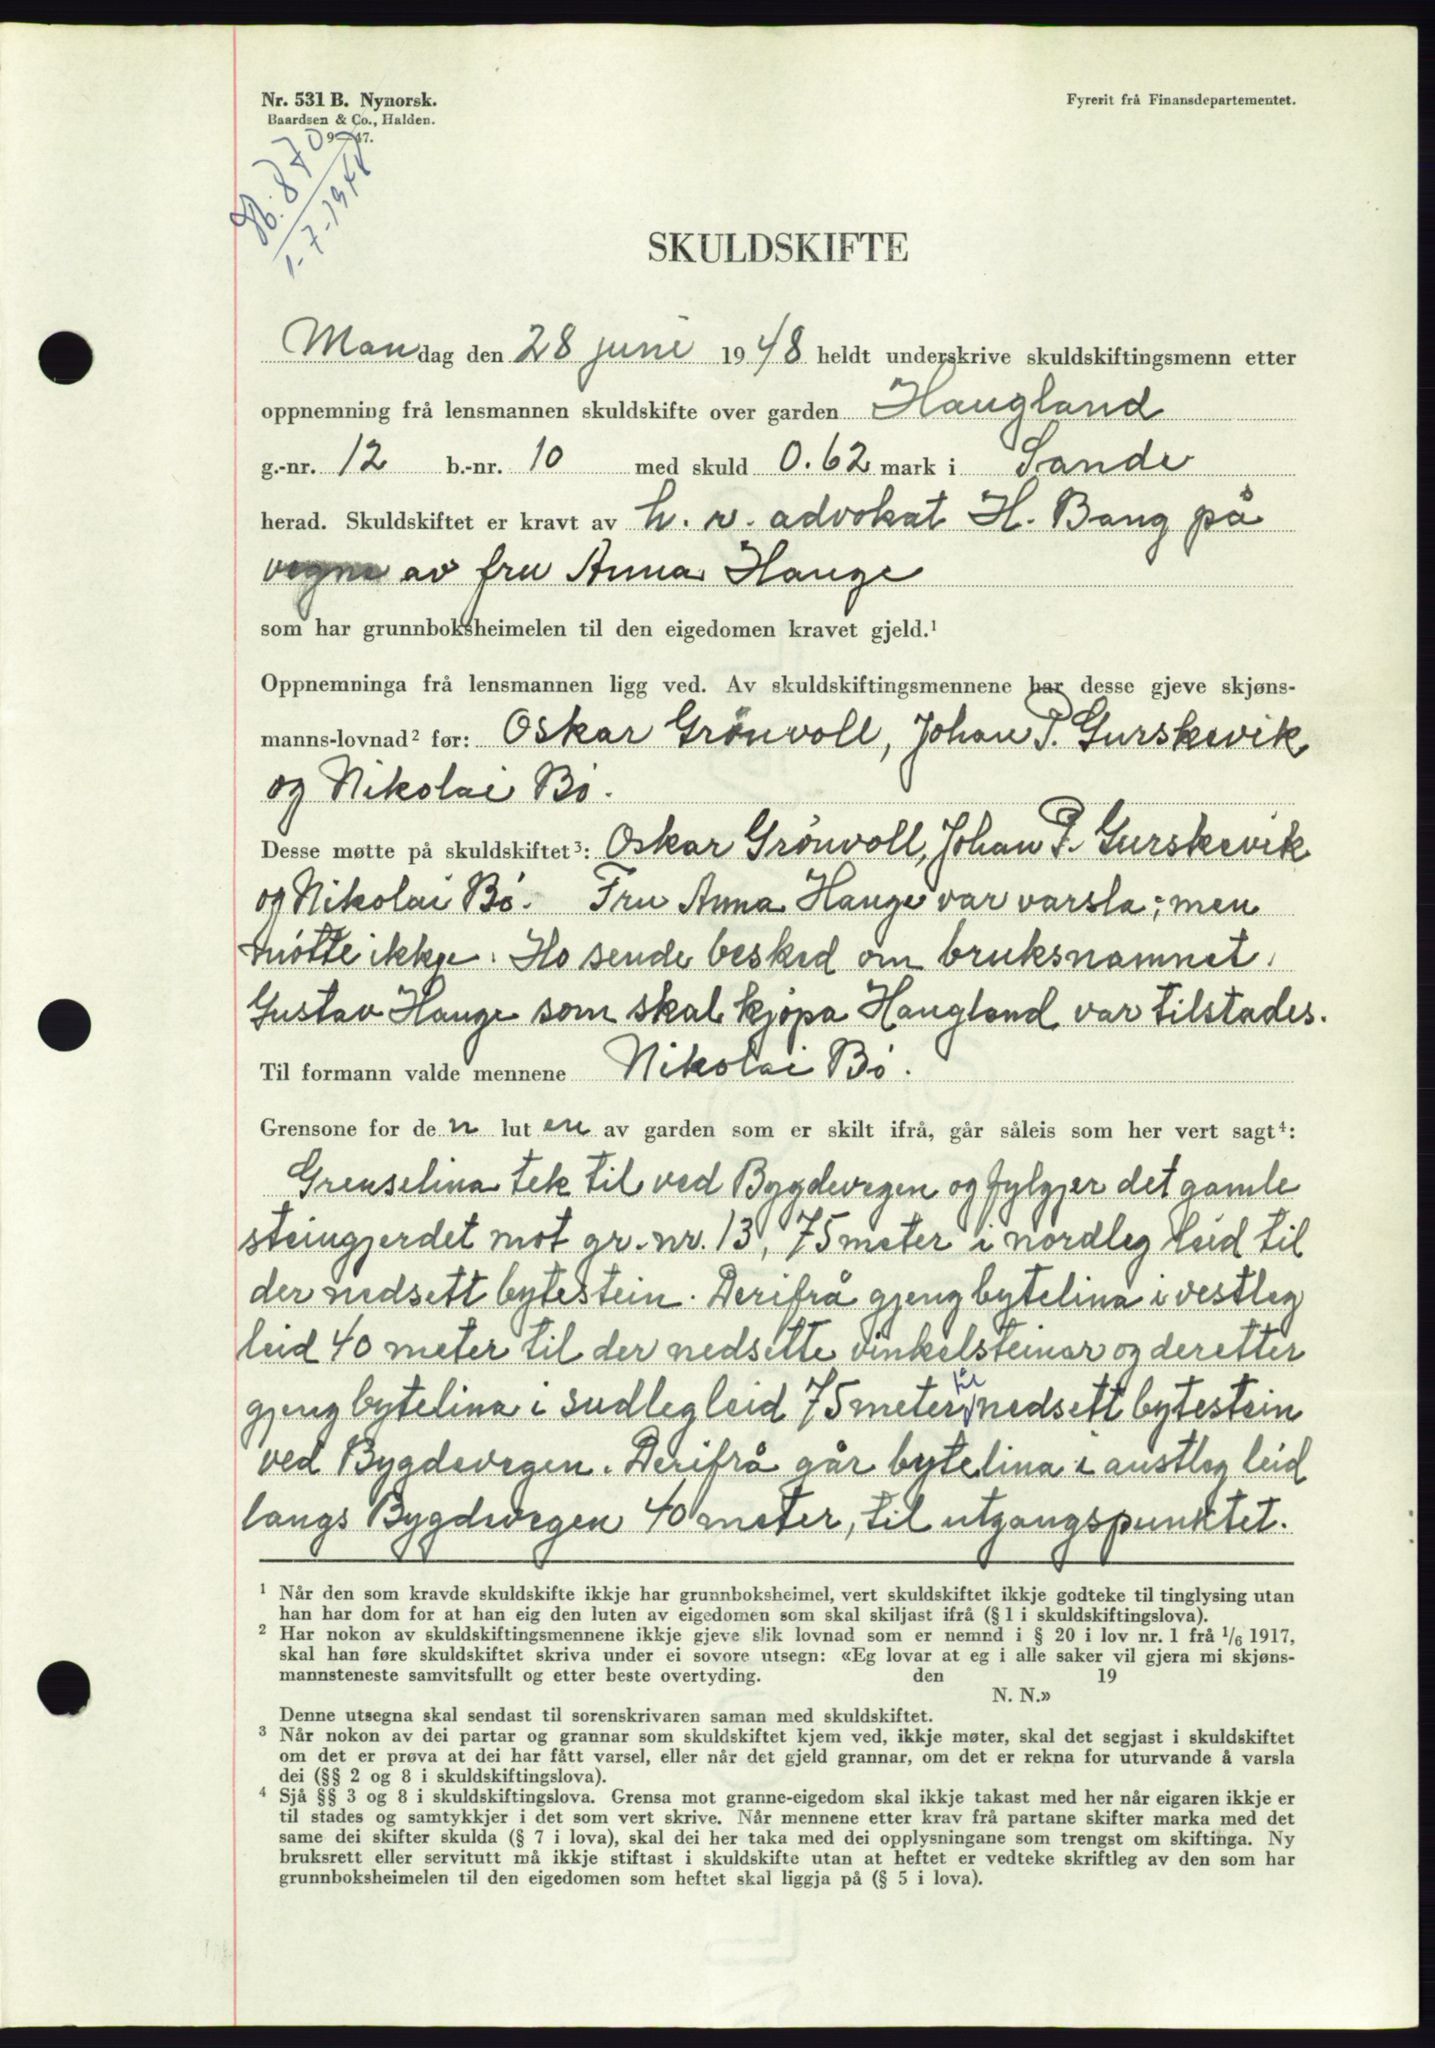 Nr. 531 B. Nynorsk.
Baardsen & Co., Halden.
9—47.
Fyrerit frå Finansdepartementet.
870
1-7-1948
SKULDSKIFTE
Mandag den 28 juni 1948 heldt underskrive skuldskiftingsmenn etter
oppnemning frå lensmannen skuldskifte over garden Haugland
g.-nr. 12 b.-nr. 10 med skuld 0.62 mark i Sande
herad. Skuldskiftet er kravt av h. r. advokat H. Bang på
vegne av fru Anna Hauge
som har grunnboksheimelen til den eigedomen kravet gjeld.¹
Oppnemninga frå lensmannen ligg ved. Av skuldskiftingsmennene har desse gjeve skjøns-
manns-lovnad² før: Oskar Grönvoll, Johan P. Gurskevik
og Nikolai Bö.
Desse møtte på skuldskiftet³: Oskar Grönvoll, Johan P. Gurskevik
og Nikolai Bö. Fru Anna Hauge var varsla; men
mötte ikkje. Ho sende besked om bruksnamnet.
Gustav Hauge som skal kjöpa Haugland var tilstades.
Til formann valde mennene Nikolai Bö.
Grensone for den luten av garden som er skilt ifrå, går såleis som her vert sagt⁴:
Grenselina tek til ved Bygdevegen og fylgjer det gamle
steingjerdet mot gr. nr. 13, 75 meter i nordleg leid til
der nedsett bytestein. Derifrå gjeng bytelina i vestleg
leid 40 meter til der nedsette vinkelsteinar og deretter
gjeng bytelina i sudleg leid 75 meter til nedsett bytestein
ved Bygdevegen. Derifrå går bytelina i austleg leid
langs Bygdevegen 40 meter, til utgangspunktet.
¹ Når den som kravde skuldskifte ikkje har grunnboksheimel, vert skuldskiftet ikkje godteke til tinglysing utan
han har dom for at han eig den luten av eigedomen som skal skiljast ifrå (§ 1 i skuldskiftingslova).
² Har nokon av skuldskiftingsmennene ikkje gjeve slik lovnad som er nemnd i § 20 i lov nr. 1 frå 1/6 1917,
skal han føre skuldskiftet skriva under ei sovore utsegn: «Eg lovar at eg i alle saker vil gjera mi skjøns-
mannsteneste samvitsfullt og etter beste overtyding. den 19
N. N.»
Denne utsegna skal sendast til sorenskrivaren saman med skuldskiftet.
³ Når nokon av dei partar og grannar som skuldskiftet kjem ved, ikkje møter, skal det segjast i skuldskiftet
om det er prøva at dei har fått varsel, eller når det gjeld grannar, om det er rekna for uturvande å varsla
dei (§§ 2 og 8 i skuldskiftingslova).
⁴ Sjå §§ 3 og 8 i skuldskiftingslova. Grensa mot granne-eigedom skal ikkje takast med her når eigaren ikkje er
til stades og samtykkjer i det som vert skrive. Når mennene etter krav frå partane skifter marka med det
same dei skifter skulda (§ 7 i lova), skal dei her taka med dei opplysningane som trengst om skiftinga. Ny
bruksrett eller servitutt må ikkje stiftast i skuldskifte utan at heftet er vedteke skriftleg av den som har
grunnboksheimelen til den eigedomen som heftet skal liggja på (§ 5 i lova).